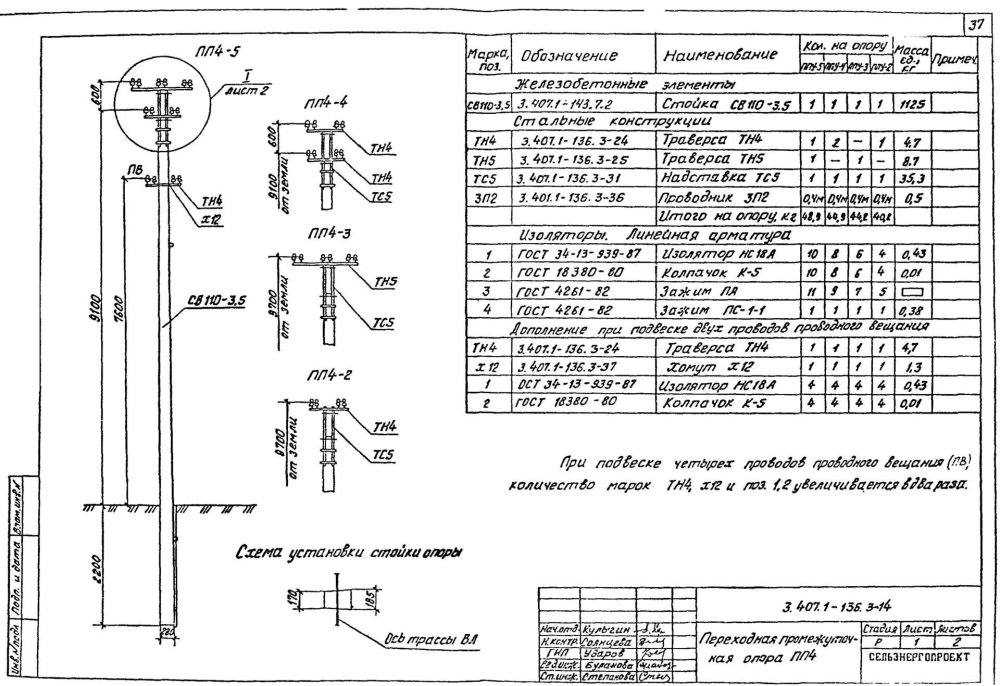 37
ПП4-5
I
лист 2
600
ПВ
ТН4
Х12
9100
7600
СВ110-3,5
2200
280
ПП4-4
600
ТН4
ТН4
ТС5
9100
от земли
ПП4-3
ТН5
ТС5
9700
от земли
ПП4-2
ТН4
ТС5
9700
от земли
Схема установки стойки опоры
170
185
Ось трассы ВЛ
Марка, поз. Обозначение Наименование Кол. на опору Масса ед., кг Примеч.
ПП4-5 ПП4-4 ПП4-3 ПП4-2
Железобетонные элементы
СВ110-3,5 3.407.1-143.7.2 Стойка СВ110-3.5 1 1 1 1 1125
Стальные конструкции
ТН4 3.407.1-136.3-24 Траверса ТН4 1 2 - 1 4,7
ТН5 3.407.1-136.3-25 Траверса ТН5 1 - 1 - 8.7
ТС5 3.407.1-136.3-31 Надставка ТС5 1 1 1 1 35,3
ЗП2 3.401.1-136.3-36 Проводник ЗП2 0,4м 0,4м 0,4м 0,4м 0,5
Итого на опору, кг 48,9 44,9 44,2 40,2
Изоляторы. Линейная арматура
1 ГОСТ 34-13-939-87 Изолятор НС18А 10 8 6 4 0,43
2 ГОСТ 18380-80 Колпачок К-5 10 8 6 4 0,01
3 ГОСТ 4261-82 Зажим ПА 11 9 7 5
4 ГОСТ 4261-82 Зажим ПС-1-1 1 1 1 1 0,38
Дополнение при подвеске двух проводов проводного вещания
ТН4 3.407.1-136.3-24 Траверса ТН4 1 1 1 1 4,7
Х12 3.407.1-136.3-37 Хомут Х12 1 1 1 1 1,3
1 ОСТ 34-13-939-87 Изолятор НС18А 4 4 4 4 0,43
2 ГОСТ 18380-80 Колпачок К-5 4 4 4 4 0,01
При подвеске четырех проводов проводного вещания (ПВ)
количество марок ТН4, Х12 и поз. 1,2 увеличивается в два раза.
3.407.1-136.3-14
Нач.отд. Кулыгин
Н.контр. Солнцева
ГИП Ударов
Вед.инж. Буланова
Ст.инж. Степанова
Переходная промежуточ-
ная опора ПП4
Стадия Лист Листов
Р 1 2
СЕЛЬЭНЕРГОПРОЕКТ
Инв.№подл Подп. и дата Взам.инв.№